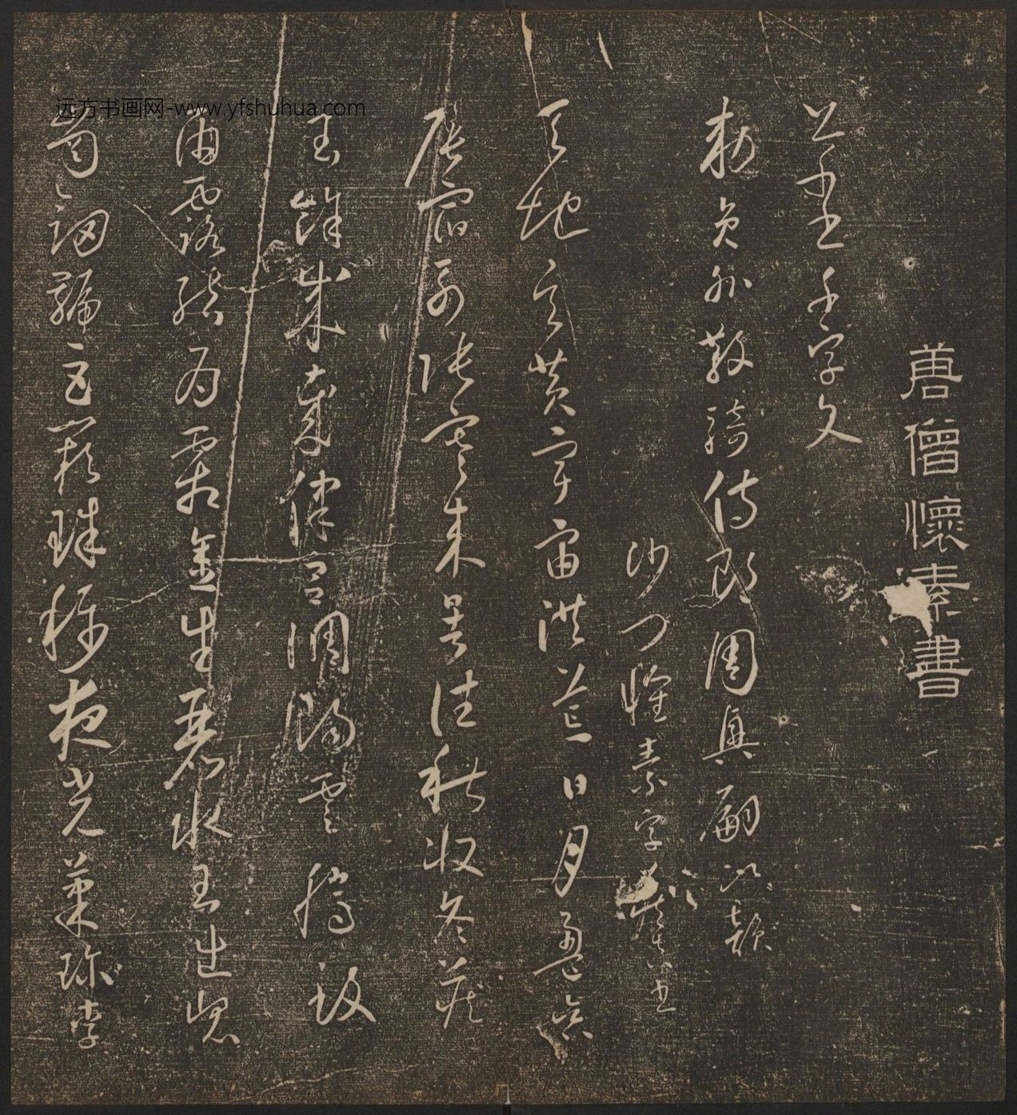 唐僧懷素書
草書千字文
敕員外散騎侍郎周興嗣次韻
沙門懷素字藏真書
天地玄黃宇宙洪荒日月盈昃
辰宿列張寒來暑往秋收冬藏
閏餘成歲律呂調陽雲騰致
雨露結為霜金生麗水玉出崑
岡劍號巨闕珠稱夜光菓珍李
远方书画网-www.yfshuhua.com